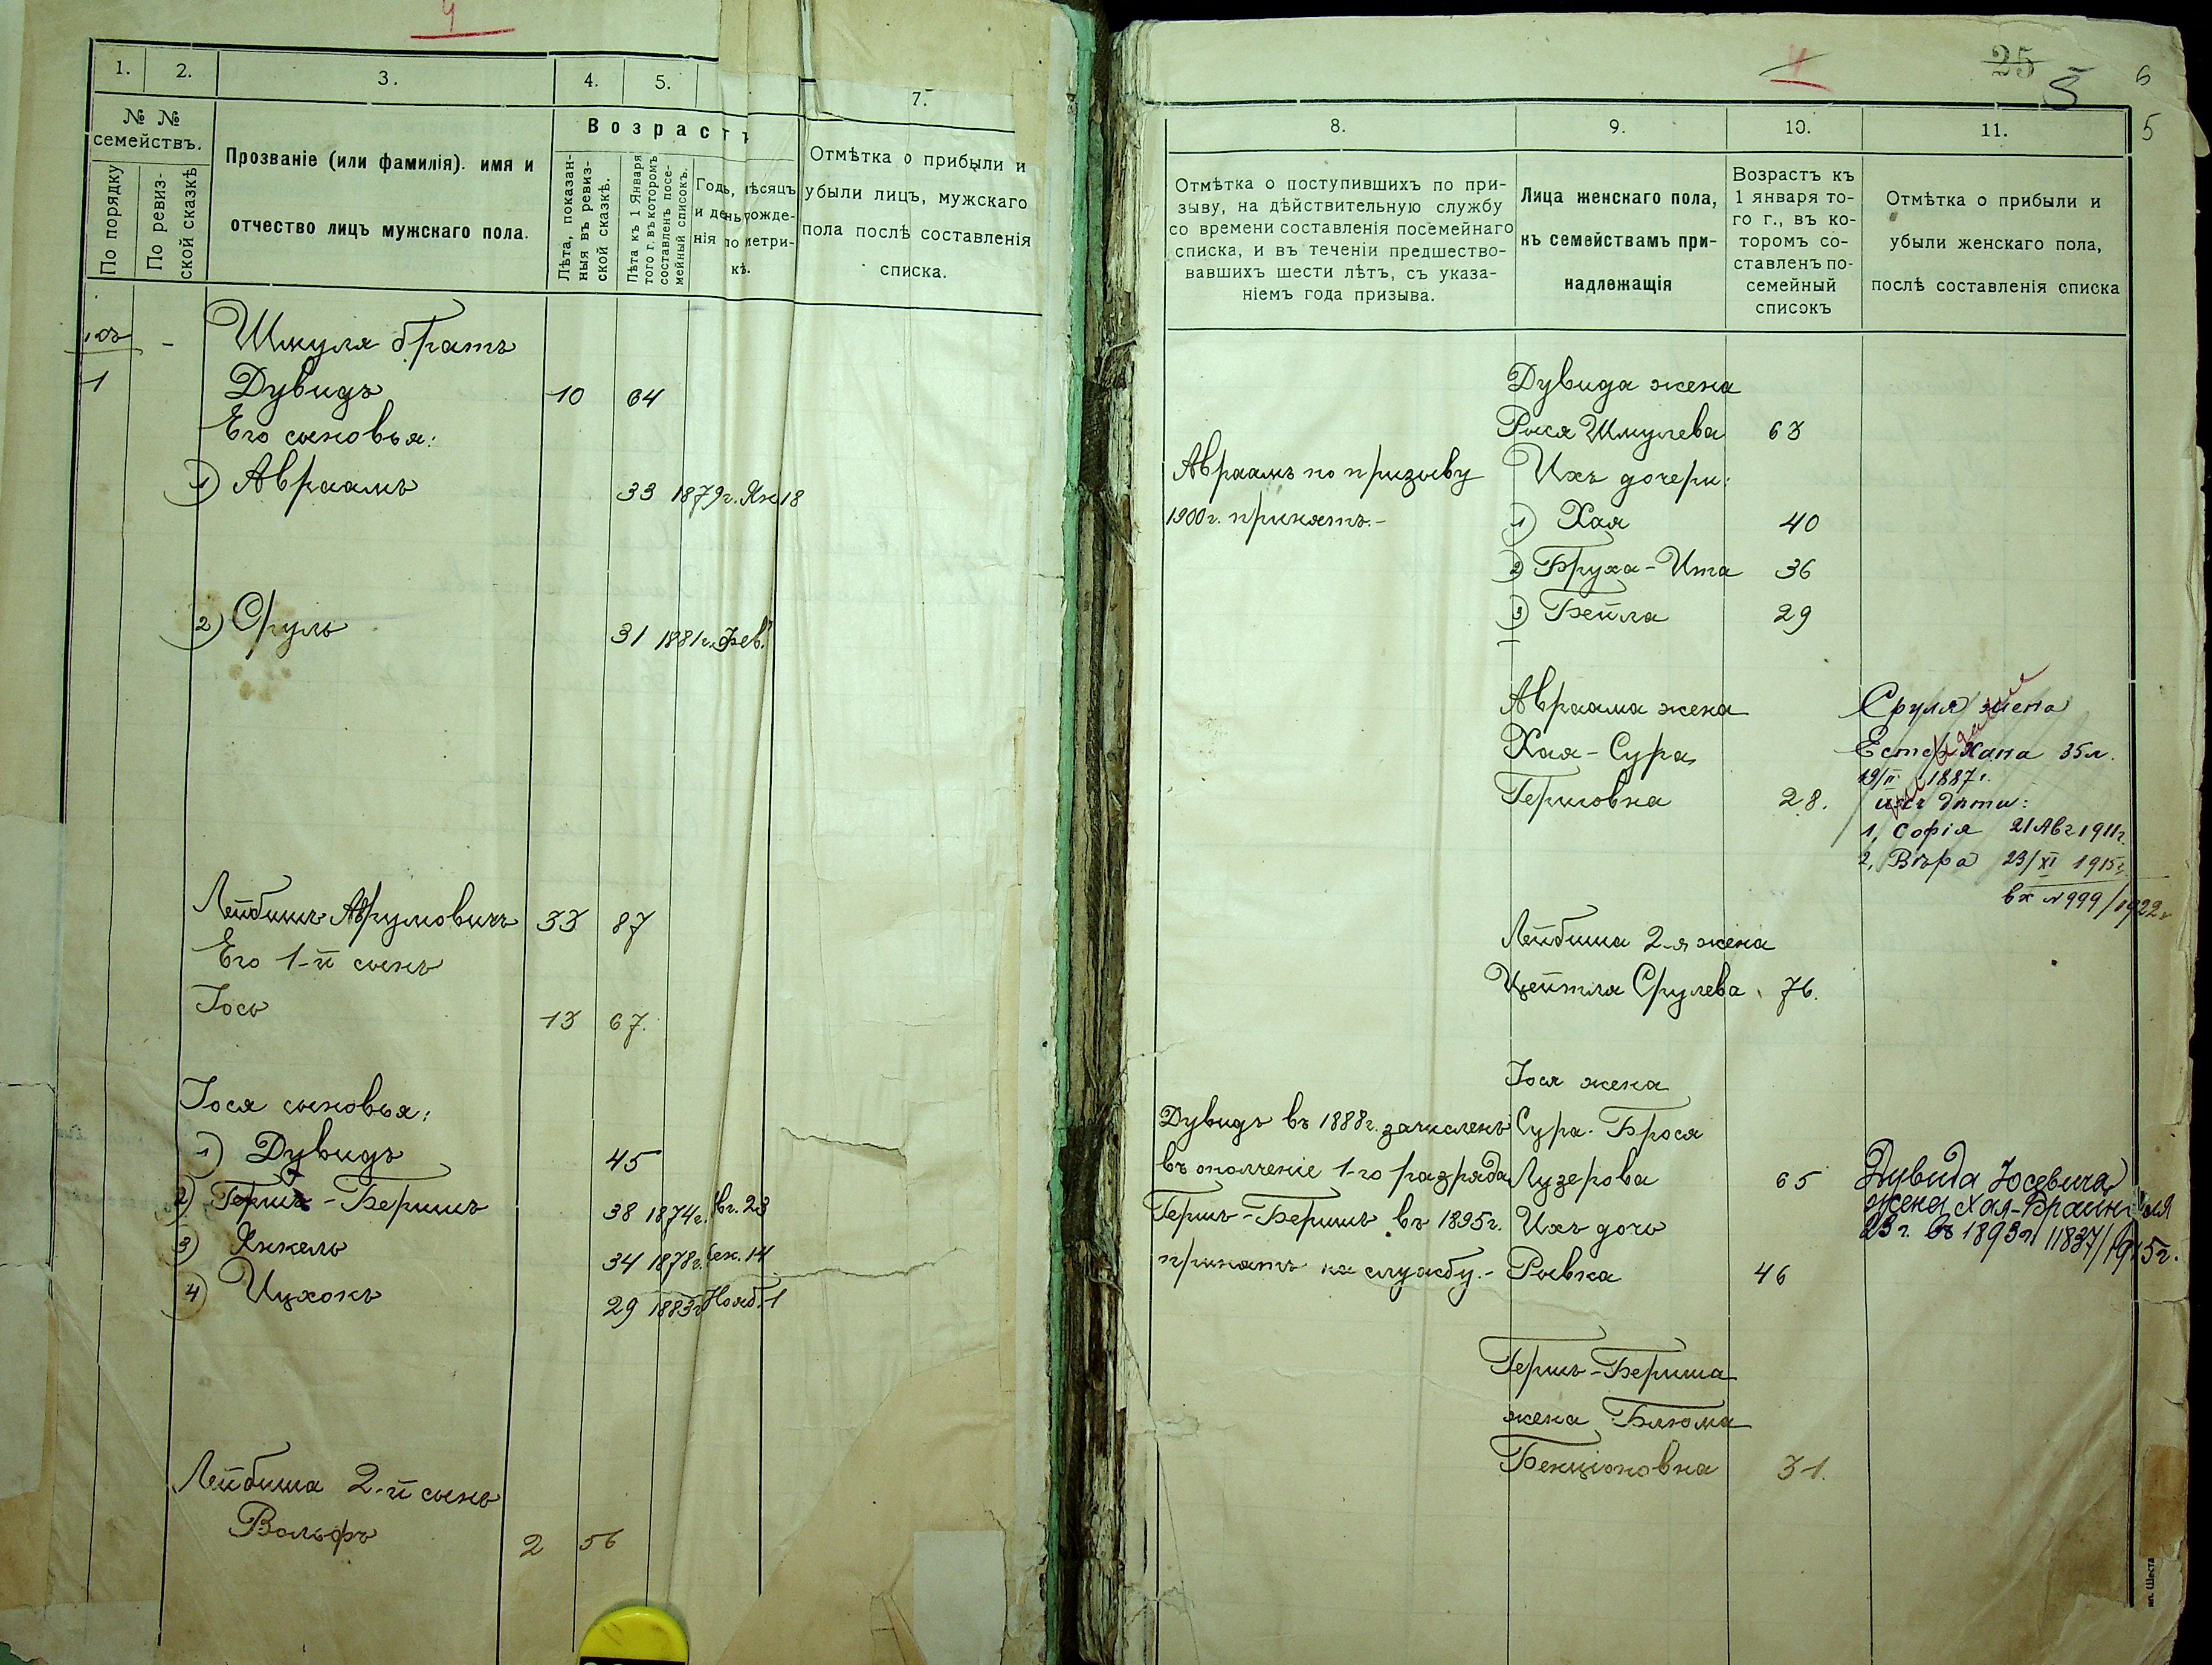 4
1.
2.
3.
4.
5.
7.
№ №
семействъ.
По порядку
По ревиз-
ской сказкѣ
Прозваніе (или фамилія). имя и
отчество лицъ мужскаго пола.
Возрастъ
Лѣта, показан-
ныя въ ревиз-
ской сказкѣ.
Лѣта къ 1 Января
того г. въ которомъ
составленъ посе-
мейный списокъ.
Годъ, мѣсяцъ
и день рожде-
нія по метри-
кѣ.
Отмѣтка о прибыли и
убыли лицъ, мужскаго
пола послѣ составленія
списка.
Шмуля братъ
1
Дувидъ 10 64
Его сыновья:
1) Авраамъ 33 1879г. Ян 18
2) Сруль 31 1881г. Фев.
Лейбишъ Аврумовичъ 33 87
Его 1-й сынъ
Іось 13 67.
Іося сыновья:
1) Дувидъ 45
2) Гершъ-Беришъ 38 1874г. Авг. 23
3) Янкель 34 1878г. Сен. 14
4) Ицхокъ 29 1883г Нояб. 1
Лейбиша 2-й сынъ
Вольфъ 2 56
4
25
5
6
5
8.
9.
10.
11.
Отмѣтка о поступившихъ по при-
зыву, на дѣйствительную службу
со времени составленія посемейнаго
списка, и въ теченіи предшество-
вавшихъ шести лѣтъ, съ указа-
ніемъ года призыва.
Лица женскаго пола,
къ семействамъ при-
надлежащія
Возрастъ къ
1 января то-
го г., въ ко-
торомъ со-
ставленъ по-
семейный
списокъ
Отмѣтка о прибыли и
убыли женскаго пола,
послѣ составленія списка
Дувида жена
Рыся Шмулева 63
Авраамъ по призыву
1900г. принятъ.-
Ихъ дочери:
1) Хая 40
2) Бруха-Ита 36
3) Бейла 29
Авраама жена
Хая-Сура
Гершовна 28.
Сруля жена
Естер Хана 35л.
19/II 1887г.
ихъ дѣти:
1, Софія 21 Авг 1911г.
2, Вѣра 23/XI 1915г.
вх № 999/1922г
Лейбиша 2-я жена
Цейтля Срулева 76.
Іося жена
Сура-Брося
Лузерова 65
Ихъ дочь
Рывка 46
Дувидъ въ 1888г. зачисленъ
въ ополченіе 1-го разряда
Гершъ-Беришъ въ 1895г.
принятъ на службу.-
Дувида Іосевича
жена Хая-Брайн
23 г. въ 1893г. 11837/1915г.
Гершъ-Бериша
жена Блюма
Бенціоновна 31.